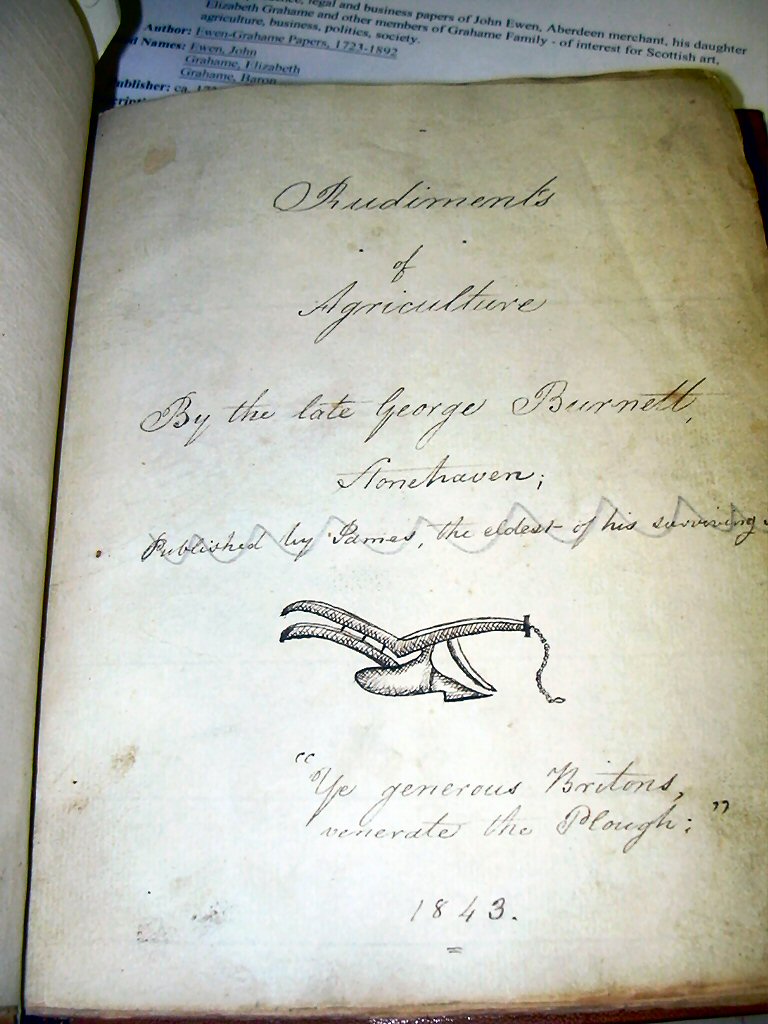 legal and business papers of John Ewen, Aberdeen merchant, his daughter
Elizabeth Grahame and other members of Grahame Family - of interest for Scottish art,
agriculture, business, politics, society.
Author: Ewen-Grahame Papers, 1723-1892
Names: Ewen, John
Grahame, Elizabeth
Grahame, Baron
ublisher: ca.
Rudiments
of
Agriculture
By the late George Burnett,
Stonehaven;
Published by James, the eldest of his surviving
"Ye generous Britons,
venerate the Plough;"
1843.